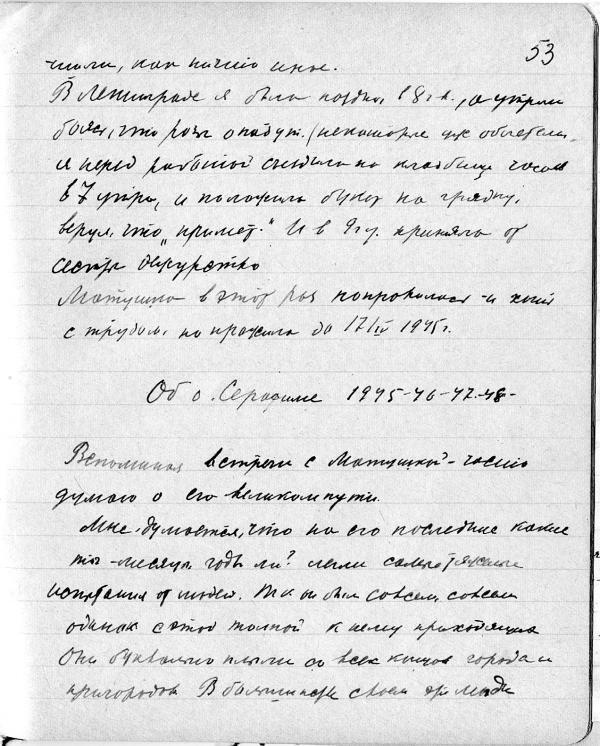 53
как ничто иное.
В Ленинграде я была поздно, в 8 ч. в., а утром
боясь, что розы опадут. (некоторые уж облетели,
и перед работой съездила на кладбище часов
в 7 утра, и положила букет на грядку,
веруя, что „примет." И в 9 ч у. приняла от
сестры дежурство
Матушка в этот раз поправилась и хотя
с трудом, но прожила до 17/IV 1945 г.
Об о. Серафиме 1945-46-47-48-
Вспоминая встречи с Матушкой - часто
думаю о его великом пути.
Мне думается, что на его последние какие
то - месяцы, годы ли? легли самые тяжелые
испытания от людей. Т к он был совсем, совсем
одинок с этой толпой к нему приходящих
Они буквально плыли со всех концов города и
пригородов В большинстве своем эти люди